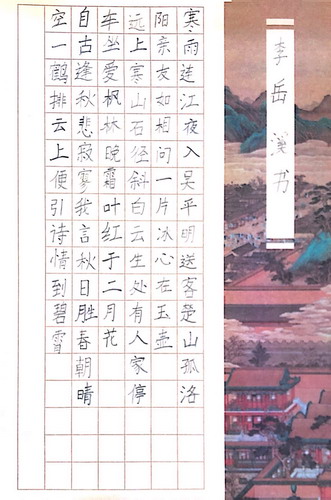 李岳溪书
寒雨连江夜入吴平明送客楚山孤洛
阳亲友如相问一片冰心在玉壶
远上寒山石径斜白云生处有人家停
车坐爱枫林晚霜叶红于二月花
自古逢秋悲寂寥我言秋日胜春朝晴
空一鹤排云上便引诗情到碧霄